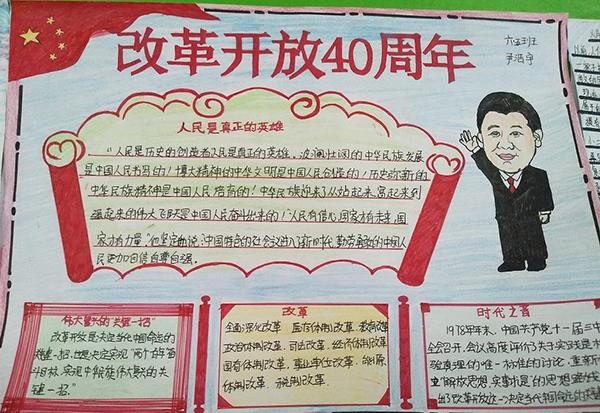 改革开放40周年
六五班
人民是真正的英雄
"人民是历史的创造者,人民是真正的英雄。波澜壮阔的中华民族发展
是中国人民书写的!博大精深的中华文明是中国人民创造的!历久弥新的
中华民族精神是中国人民培育的!中华民族迎来了从站起来、富起来到
强起来的伟大飞跃是中国人民奋斗出来的!"人民有信心,国家才有未来,国
家才有力量。"他坚定地说:中国特色的社会主义进入了新时代,勤劳勇敢的中国人
民更加自信自尊自强。
伟大复兴的"关键一招"
改革开放是决定当代中国命运的
关键一招,也是决定实现"两个百年奋
斗目标,实现中华民族伟大复兴的关
键一招。"
改革
全面深化改革 医疗体制改革 教育改革
政治体制改革,司法改革,经济体制改革
国有体制改革,事业单位改革,
体制改革,税制改革.
时代之音
1978年年末,中国共产党十一届三中
全会召开,会议高度评价了关于实践是检
验真理的唯一标准的讨论,重新
立"解放思想、实事求是"的思想
出了改革开放这一决定当代中国命运的